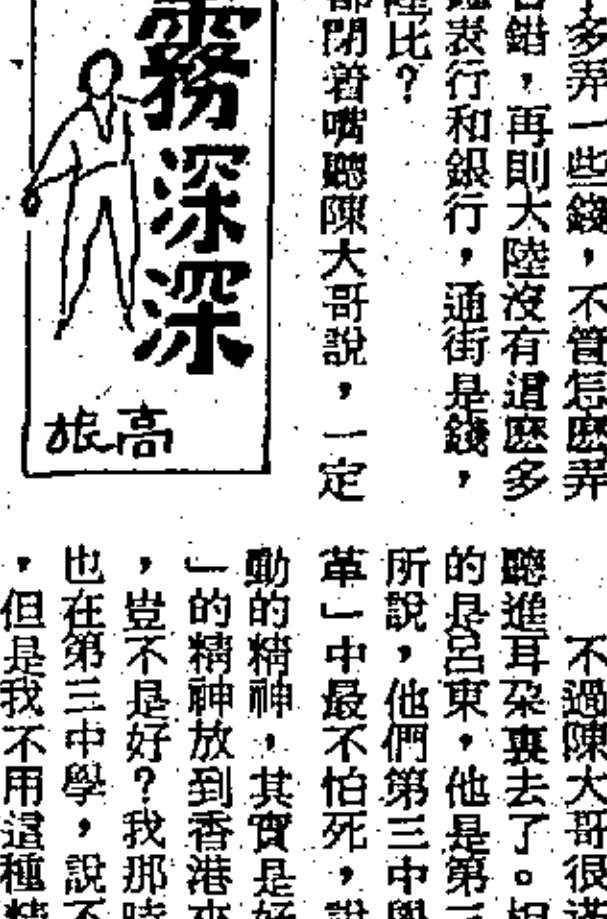 多弄一些錢，不管怎麽弄
錯，再則大陸沒有這麽多
表行和銀行，通街是錢，
陸比？
都閉着嘴聽陳大哥說，一定
霧深深
高旅
不過陳大哥很
聽進耳朶裏去了。
的是呂東，他是第
所說，他們第三中學
革」中最不怕死，說
動的精神，其實是好
」的精神放到香港來
，豈不是好？我那時
也在第三中學，說不
，但是我不用這種精